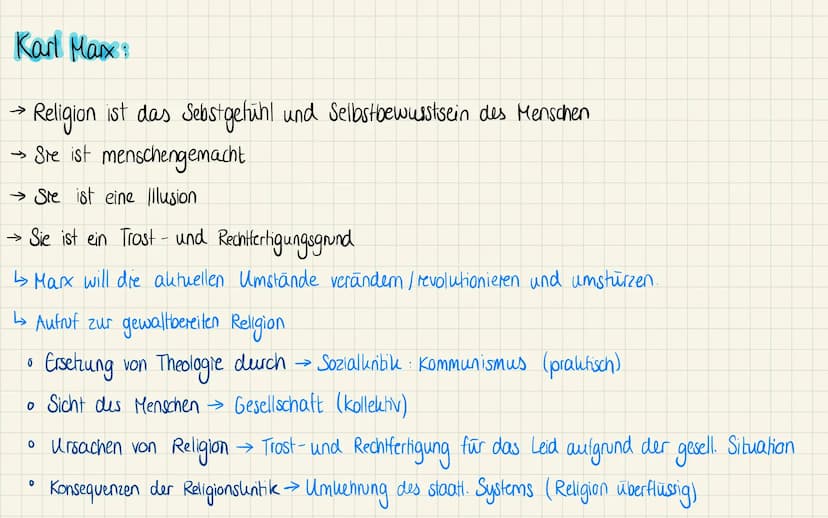 Karl Marx:
→ Religion ist das Sebstgefühl und Selbstbewusstsein des Menschen
→ Sie ist menschengemacht
→ Sie ist eine Illusion
→ Sie ist ein Trost- und Rechtfertigungsgrund
↳ Marx will die aktuellen Umstände verändern/revolutionieren und umstürzen.
↳ Aufruf zur gewaltbereiten Religion
• Ersetzung von Theologie durch → Sozialkritik: Kommunismus (praktisch)
• Sicht des Menschen → Gesellschaft (kollektiv)
• Ursachen von Religion → Trost- und Rechtfertigung für das Leid aufgrund der gesell. Situation
• Konsequenzen der Religionskritik → Umkehrung des staatl. Systems (Religion überflüssig)